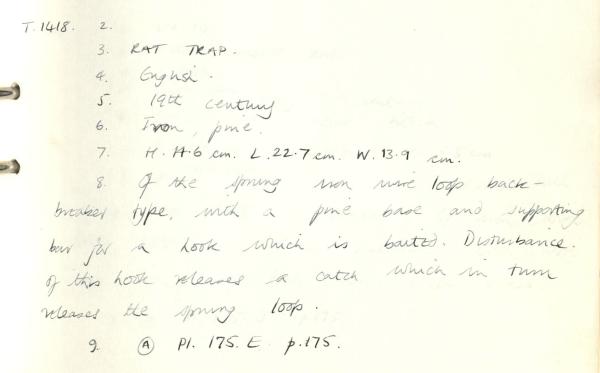 T.1418. 2.
3. RAT TRAP.
4. English.
5. 19th century
6. Iron, pine.
7. H. 11.6 cm. L. 22.7 cm. W. 13.9 cm.
8. Of the spring iron wire loop back-
breaker type, with a pine base and supporting
bar for a hook which is baited. Disturbance.
of this hook releases a catch which in turn
releases the spring loop.
9. Ⓐ Pl. 175. E. p.175.